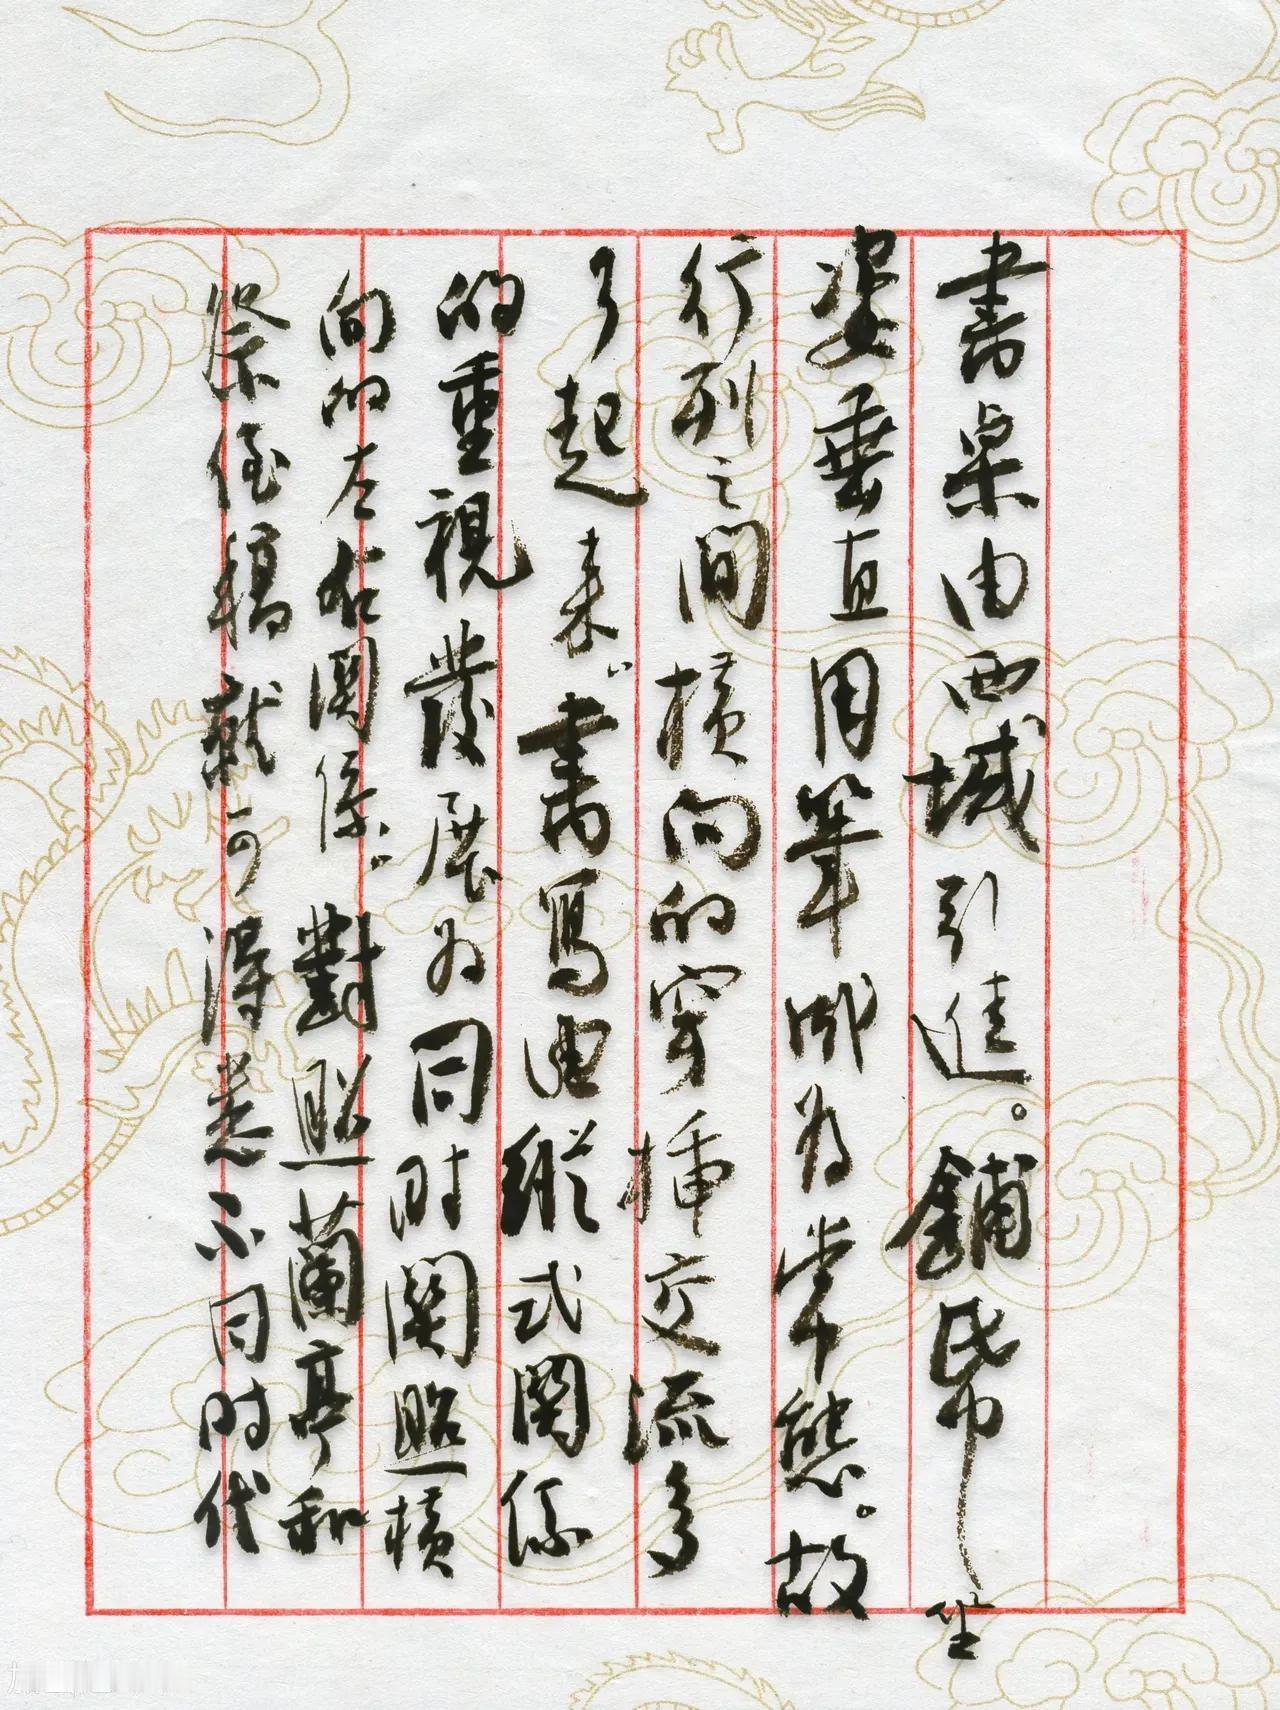 書桌由西域引進。鋪帋坐
姿垂直用筆成为常態。故
行列之间橫向的穿插交流多
了起来。書寫由縱式関係
的重視發展为同时関照橫
向的左右関係。對照蘭亭和
祭侄稿就可得悉不同时代